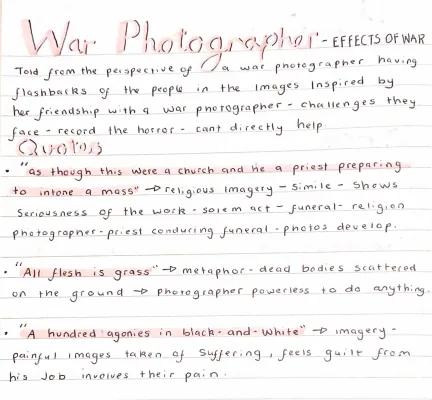 War Photographer - EFFECTS OF WAR
Told from the perspective of a war photographer having
flashbacks of the people in the images Inspired by
her friendship with a war photographer - challenges they
face - record the horror - cant directly help
Quotes
• "as though this were a church and he a priest preparing
to intone a mass" → religious imagery - simile - Shows
Seriousness of the work - solem act - funeral - religion
photographer - priest conducing funeral - photos develop.
• "All flesh is grass" → metaphor - dead bodies scattered
on the ground → Photographer powerless to do anything.
• "A hundred agonies in black-and-white" → imagery -
painful images taken of suffering, feels guilt from
his Job involves their pain.